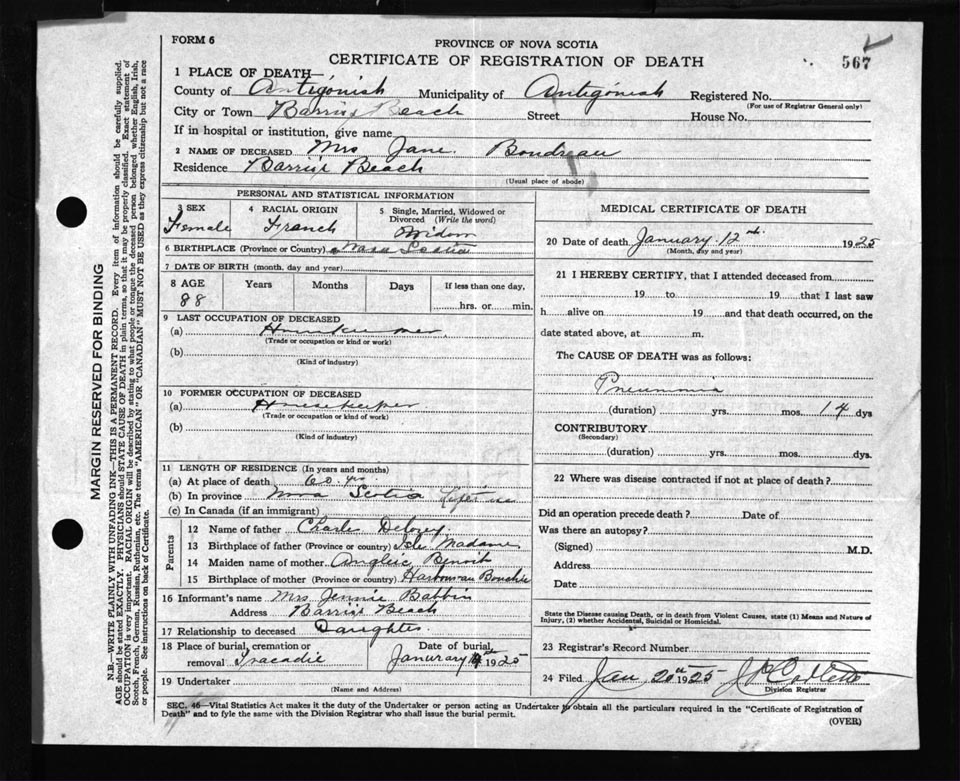 FORM 6
PROVINCE OF NOVA SCOTIA
567
CERTIFICATE OF REGISTRATION OF DEATH
1 PLACE OF DEATH—
County of Antigonish Municipality of Antigonish Registered No.
(For use of Registrar General only)
City or Town Barrios Beach Street House No.
If in hospital or institution, give name
2 NAME OF DECEASED Mrs Jane Boudreau
Residence Barrios Beach
(Usual place of abode)
PERSONAL AND STATISTICAL INFORMATION
3 SEX Female
4 RACIAL ORIGIN French
5 Single, Married, Widowed or Divorced (Write the word) Widow
6 BIRTHPLACE (Province or Country) Nova Scotia
7 DATE OF BIRTH (month, day and year)
8 AGE Years Months Days If less than one day,
88 hrs. or min.
9 LAST OCCUPATION OF DECEASED
(a) Housekeeper
(Trade or occupation or kind of work)
(b)
(Kind of industry)
10 FORMER OCCUPATION OF DECEASED
(a) Housekeeper
(Trade or occupation or kind of work)
(b)
(Kind of industry)
11 LENGTH OF RESIDENCE (In years and months)
(a) At place of death 60 yrs
(b) In province Nova Scotia Life time
(c) In Canada (if an immigrant)
Parents
12 Name of father Charles Delorey
13 Birthplace of father (Province or country) Isle Madame
14 Maiden name of mother Benoit
15 Birthplace of mother (Province or country) Harbour au Bouche
16 Informant's name Mrs Jennie Babbin
Address Barrios Beach
17 Relationship to deceased Daughter
18 Place of burial, cremation or removal Tracadie
Date of burial January 1925
19 Undertaker
(Name and Address)
MEDICAL CERTIFICATE OF DEATH
20 Date of death January 12nd 1925
(Month, day and year)
21 I HEREBY CERTIFY, that I attended deceased from
19 to 19 that I last saw
h alive on 19 and that death occurred, on the
date stated above, at m.
The CAUSE OF DEATH was as follows:
Pneumonia
(duration) yrs. mos. 14 dys
CONTRIBUTORY
(Secondary)
(duration) yrs. mos. dys.
22 Where was disease contracted if not at place of death?
Did an operation precede death? Date of
Was there an autopsy?
(Signed) M.D.
Address
Date
State the Disease causing Death, or in death from Violent Causes, state (1) Means and Nature of
Injury, (2) whether Accidental, Suicidal or Homicidal.
23 Registrar's Record Number
24 Filed Jan 20th 1925
Division Registrar
SEC. 46—Vital Statistics Act makes it the duty of the Undertaker or person acting as Undertaker to obtain all the particulars required in the "Certificate of Registration of
Death" and to fyle the same with the Division Registrar who shall issue the burial permit.
(OVER)
MARGIN RESERVED FOR BINDING
N.B.—WRITE PLAINLY WITH UNFADING INK—THIS IS A PERMANENT RECORD. Every item of information should be carefully supplied.
AGE should be stated EXACTLY. PHYSICIANS should STATE CAUSE OF DEATH in plain terms, so that it may be properly classified. Exact statement of
OCCUPATION is very important. RACIAL ORIGIN will be described by stating to what people or tongue the deceased person belonged whether English, Irish,
Scotch, French, German, Russian, Ruthenian, etc. The terms "AMERICAN" OR "CANADIAN" MUST NOT BE USED as they express citizenship but not a race
or people. See instructions on back of Certificate.